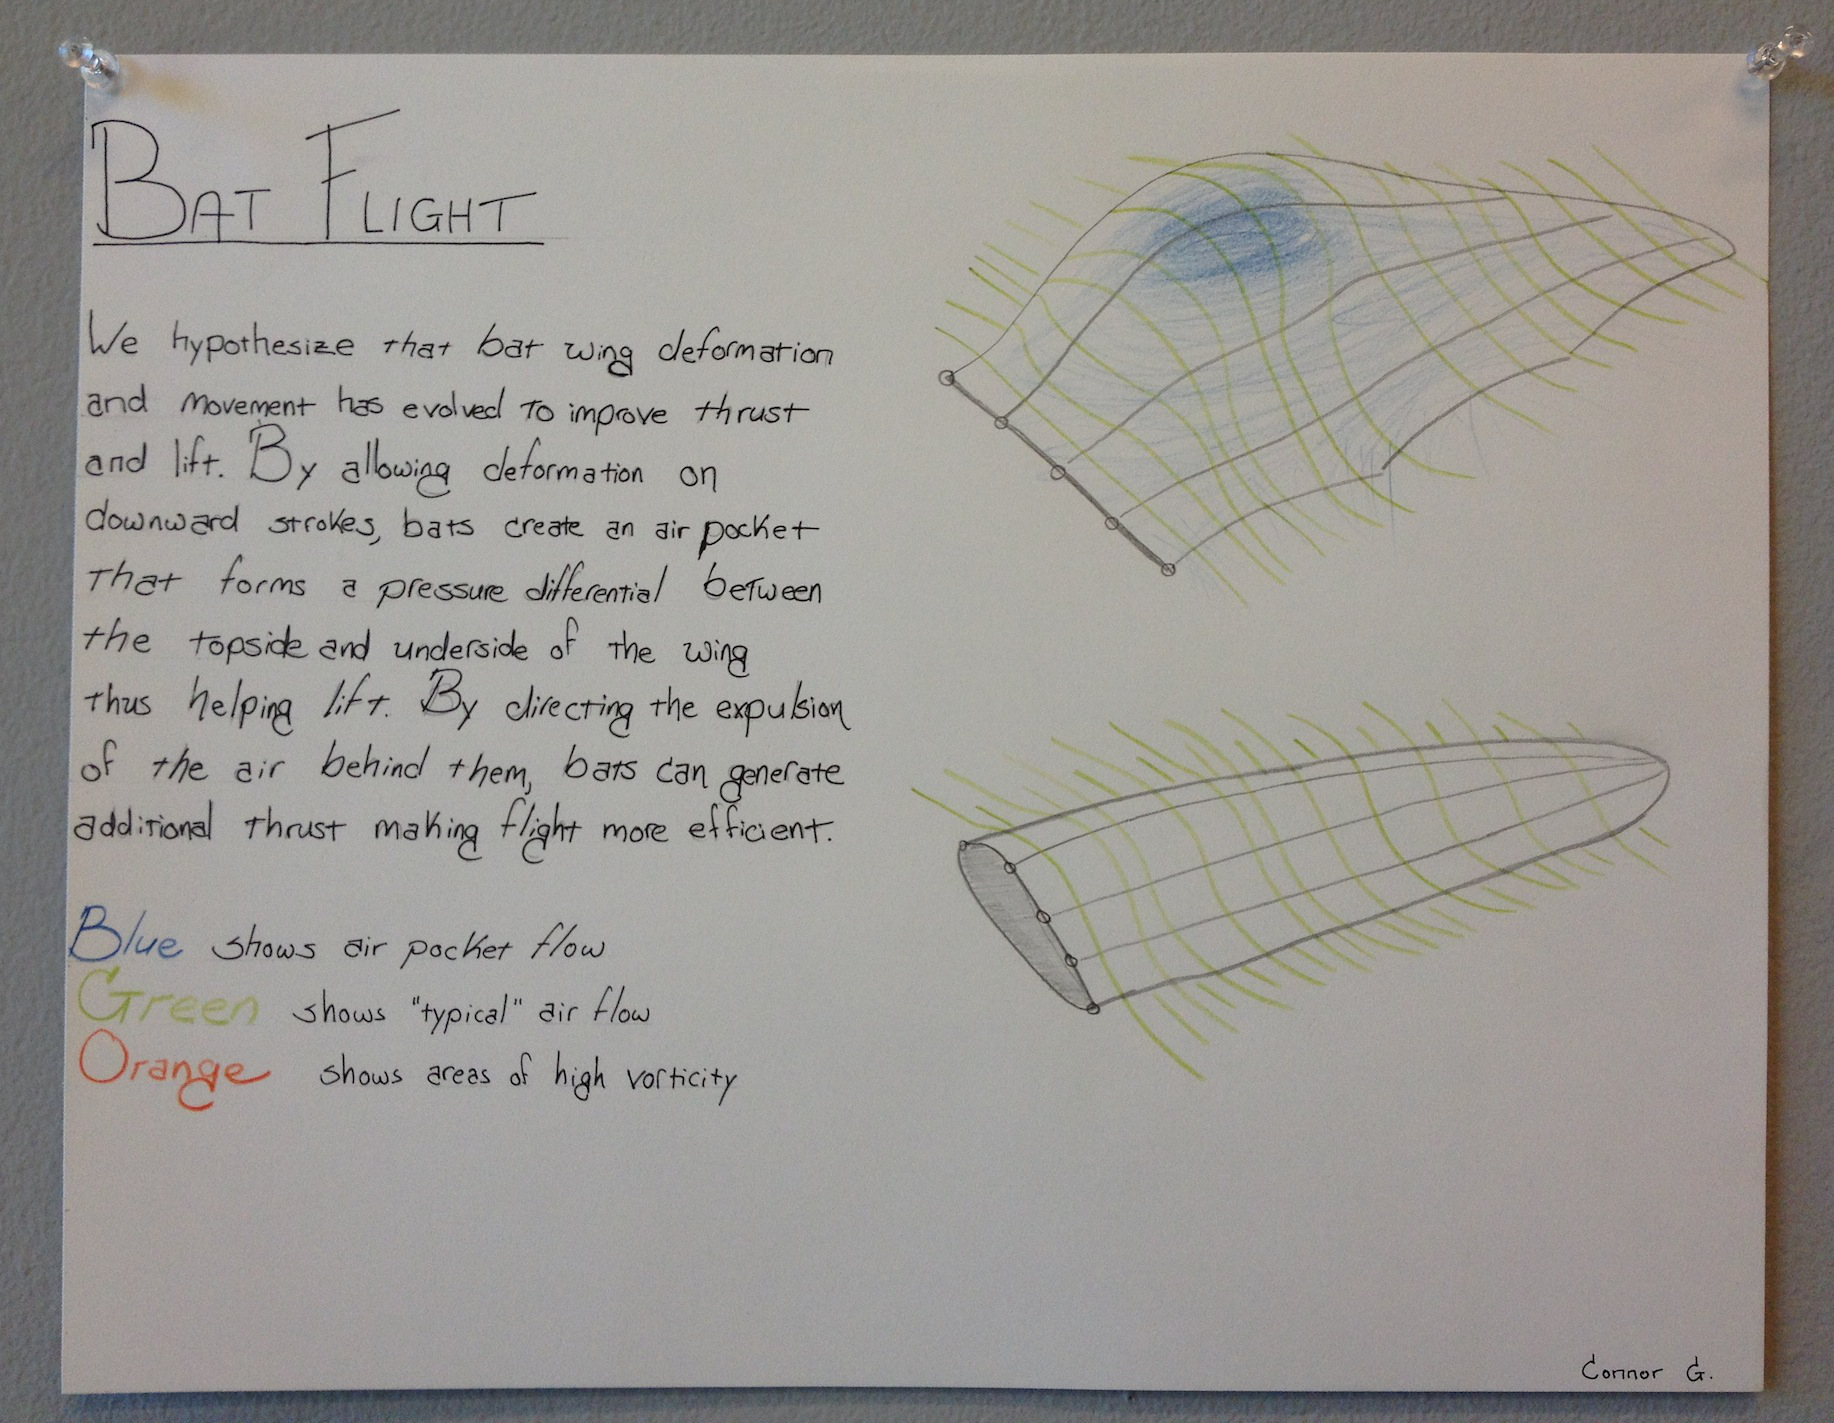 BAT FLIGHT
We hypothesize that bat wing deformation
and movement has evolved to improve thrust
and lift. By allowing deformation on
downward strokes, bats create an air pocket
that forms a pressure differential between
the topside and underside of the wing
thus helping lift. By directing the expulsion
of the air behind them, bats can generate
additional thrust making flight more efficient.
Blue shows air pocket flow
Green shows "typical" air flow
Orange shows areas of high vorticity
Connor G.